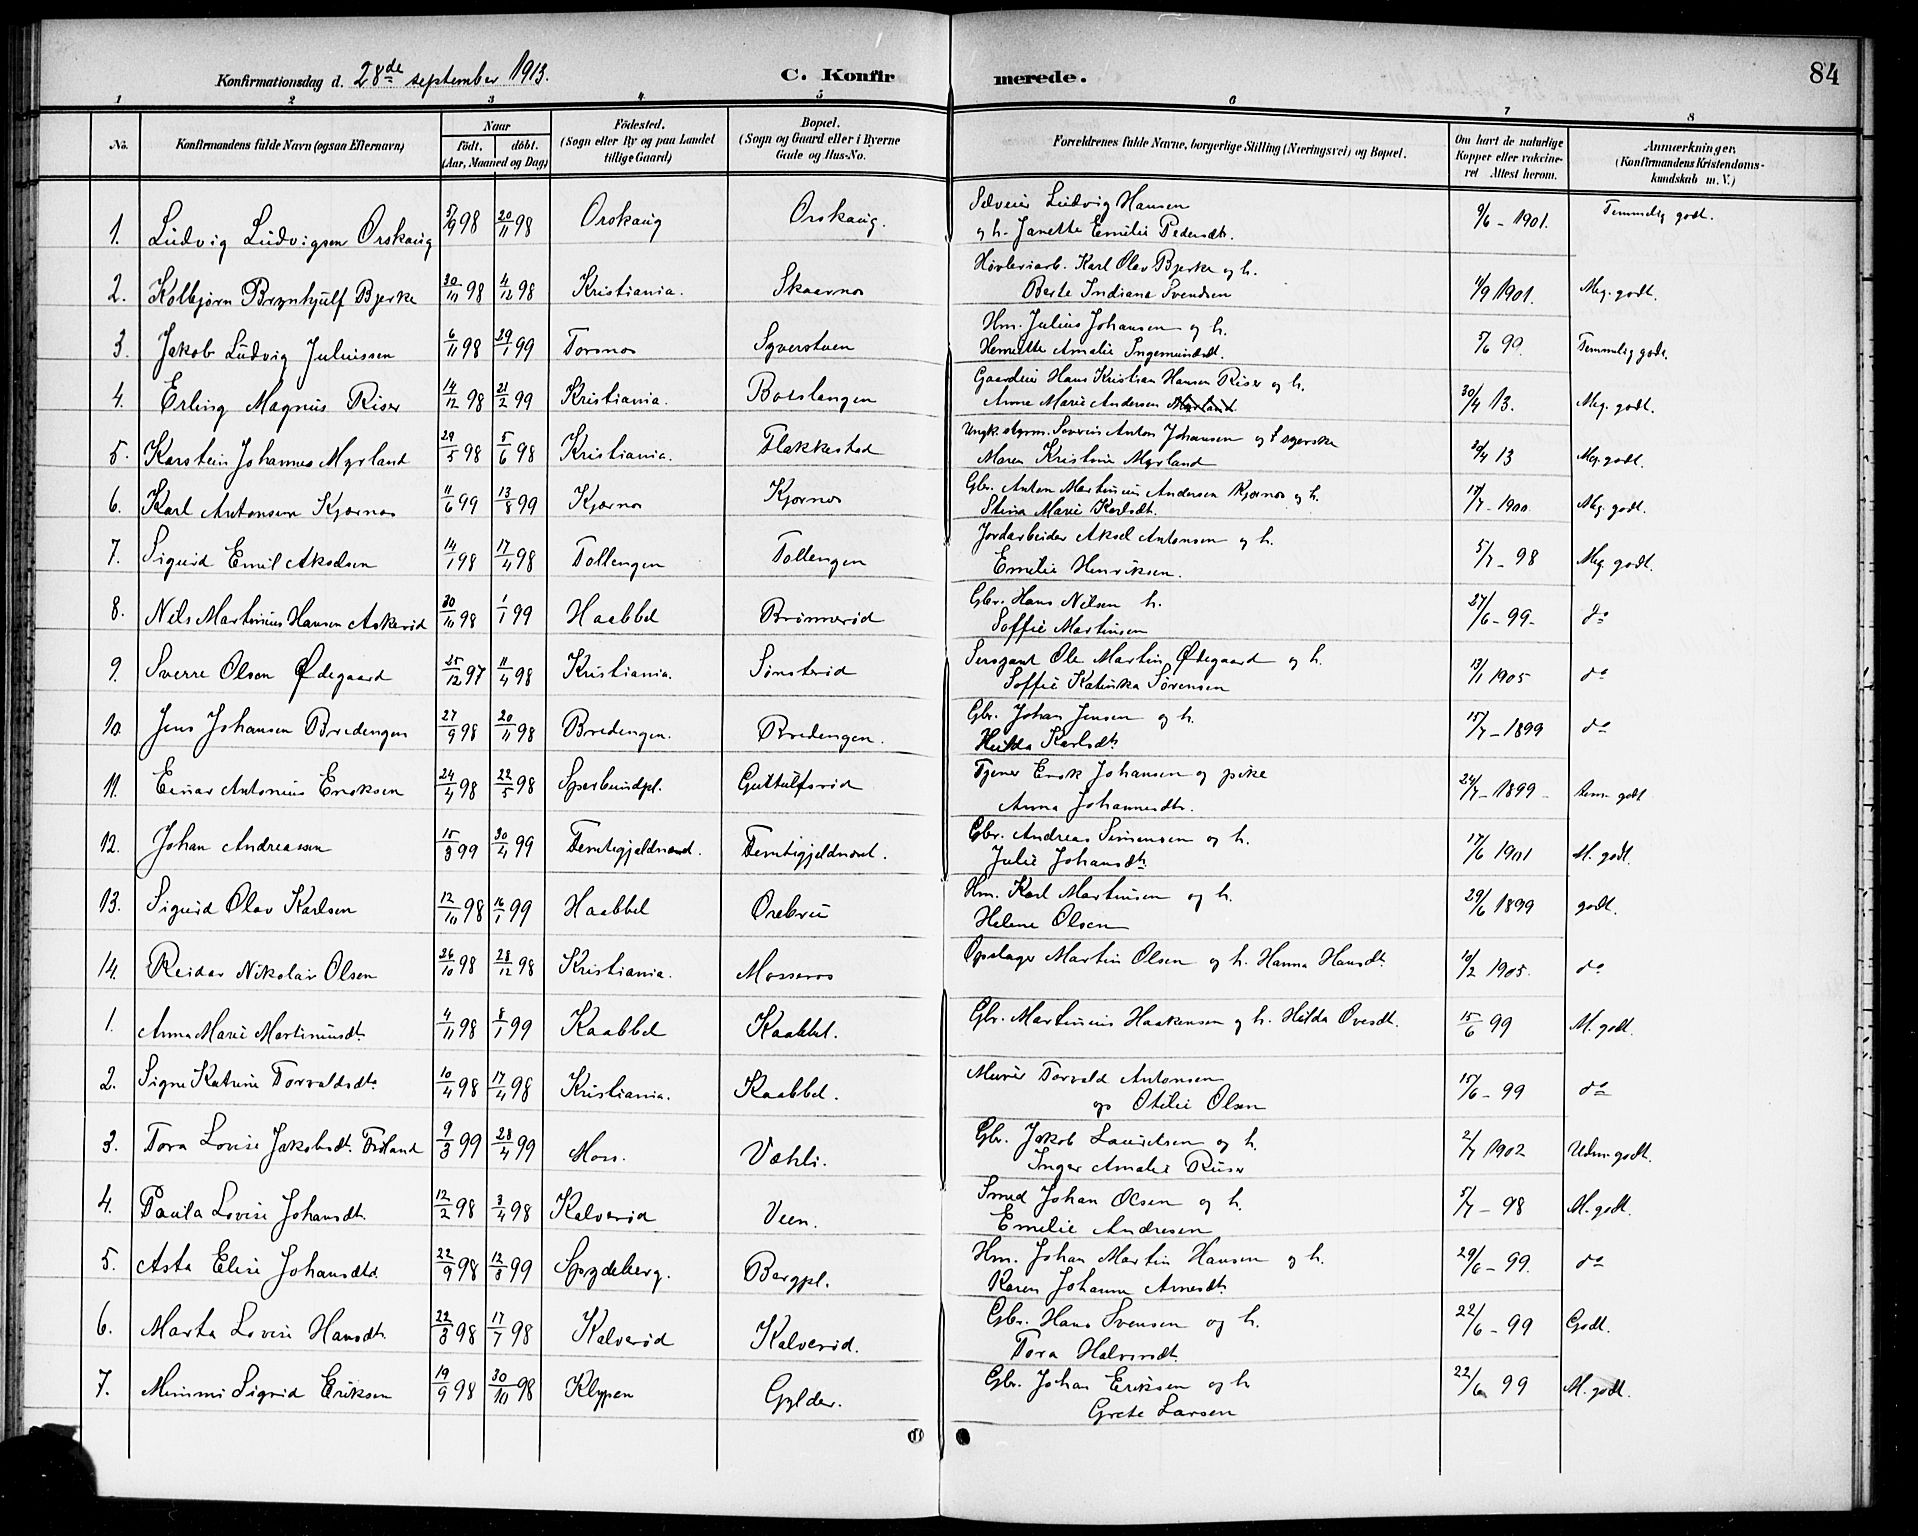 Konfirmationsdag d. 28de september 1913. C. Konfirmerede. 84
1 2 3 4 5 6 7 8
No. Konfirmandens fulde Navn (ogsaa Efternavn) Naar født. døbt. (Aar, Maaned og Dag) Fødested. (Sogn eller By og paa Landet tillige Gaard) Bopæl. (Sogn og Gaard eller i Byerne Gade og Hus-No. Forældrenes fulde Navne, borgerlige Stilling (Næringsvei) og Bopæl. Om havt de naturlige Kopper eller vakcineret Attest herom. Anmærkninger. (Konfirmandens Kristendomskundskab m. V.)
1. Ludvig Ludvigsen Orskaug 5/9 98 20/11 98 Orskaug Orskaug. Selveier Ludvig Hansen og h. Janette Emilie Pedersdt. 9/6 - 1901. Temmelig godt.
2. Kolbjørn Brynhjulf Bjerke 30/10 98 4/12 98 Kristiania. Skaarnes Høvleriarb. Karl Olav Bjerke og h. Berte Indiana Svendsen 4/9 1901. Meg. godt.
3. Jakob Ludvig Juliussen 6/11 98 29/1 99 Torsnes Syverstuen Hm. Julius Johansen og h. Henriette Amalie Ingemundsdt. 5/6 99. Temmelig godt.
4. Erling Magnus Riser 14/12 98 21/2 99 Kristiania. Botslangen Gaardeier Hans Kristian Hansen Riser og h. Anne Marie Andersen Myrland 30/4 13. Meg. godt.
5. Karstein Johannes Myrland 29/5 98 5/6 98 Kristiania. Flakkestad Ungk. styrm. Severin Anton Johansen og f syerske Maren Kristine Myrland 30/4 13 Meg. godt.
6. Karl Antonsen Kjærnes 11/6 99 13/8 99 Kjærnes Kjærnes Gbr. Anton Martinius Andersen Kjærnes og h. Stina Marie Karlsdt. 17/7 - 1900. Meg. godt.
7. Sigurd Emil Akselsen 14/1 98 17/4 98 Tollengen Tollengen Jordarbeider Aksel Antonsen og h. Emilie Henriksen. 5/7 - 98 Meg. godt.
8. Nils Martinius Hansen Askerød 30/10 98 1/1 99 Haabbel Brønnerød Gbr. Hans Nilsen h. Soffie Martinsen 27/6 - 99 - do
9. Sverre Olsen Ødegaard 25/12 97 11/4 98 Kristiania. Sønsterød Sersjant Ole Martin Ødegaard og h. Soffie Katinka Sørensen 13/1 1905 do
10. Jens Johansen Bredengen 27/9 98 20/11 98 Bredengen. Bredengen. Gbr. Johan Jensen og h. Hulda Karlsdt. 15/7 - 1899 do
11. Einar Antonius Eriksen 24/4 98 22/5 98 Sperbundpl. Guttulfsrød Tjener Erik Johansen og pike Anna Johannesdt. 24/7 - 1899 - tem godt
12. Johan Andreassen 15/3 99 30/4 99 Femtigjeldnæset. Femtigjeldnæset. Gbr. Andreas Simensen og h. Julie Johansdt. 17/6 1901 M. godt.
13. Sigurd Olav Karlsen 12/10 98 16/1 99 Haabbel Ørebru Hm. Karl Martinsen og h. Helene Olsen 29/6 1899 godt.
14. Reidar Nikolai Olsen 26/10 98 28/12 98 Kristiania. Mosseros Opslager Martin Olsen og h. Hanna Hansdt. 10/2 1905. do
1. Anna Marie Martinusdt. 4/11 98 8/1 99 Kaabbel Kaabbel. Gbr. Martinius Haakensen og h. Hilda Ovesdt. 15/6 99 M. godt.
2. Signe Katrine Torvaldsdt. 10/4 98 17/4 98 Kristiania. Kaabbel. Murer Torvald Antonsen og Otilie Olsen 15/6 - 99 do
3. Tora Lovise Jakobsdt. Friland 9/3 99 28/4 99 Moss. Væhli. Gbr. Jakob Lauritsen og h. Inger Amalie Ruser 2/7 1902 Udm. godt.
4. Paula Lovise Johansdt. 12/2 98 3/4 98 Kalverød Veen. Smed Johan Olsen og h. Emelie Andresen 5/7 - 98 M. godt.
5. Asta Elise Johansdt. 22/9 98 12/3 99 Spydeberg. Bergpl. Hm. Johan Martin Hansen og h. Karen Johanne Arnesdt. 29/6 - 99. do
6. Marta Lovise Hansdt. 22/3 98 17/7 98 Kalverød Kalverød. Gbr. Hans Svensen og h. Tora Halvorsdt. 22/6 - 99 Godt.
7. Mimmi Sigrid Eriksen 19/9 98 30/10 98 Klypen Gylder. Gbr. Johan Eriksen og h Grete Larsen 22/6 99 M. godt.